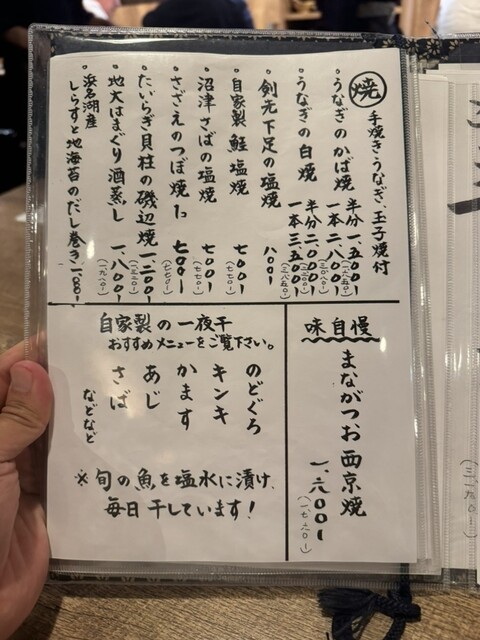 焼 手焼きうなぎ、玉子焼付
・うなぎのかば焼 半分 一、五〇〇 一本 二、八〇〇
・うなぎの白焼 半分 二、〇〇〇 一本 三、五〇〇
・剣先下足の塩焼 八〇〇
・自家製 鮭塩焼 七〇〇 (七七〇)
・沼津さばの塩焼 七〇〇 (七七〇)
・さざえのつぼ焼 1ヶ 七〇〇 (七七〇)
・たいらぎ貝柱の磯辺焼 一、二〇〇 (一、三二〇)
・地大はまぐり酒蒸し 一、八〇〇 (一、九八〇)
・浜名湖産
しらすと地海苔のだし巻き
味自慢
まながつお西京焼
一、六〇〇 (一、七六〇)
自家製の一夜干
おすすめメニューをご覧下さい。
のどぐろ
キンキ
かます
あじ
さば
などなど
※旬の魚を塩水に漬け、
毎日干しています!